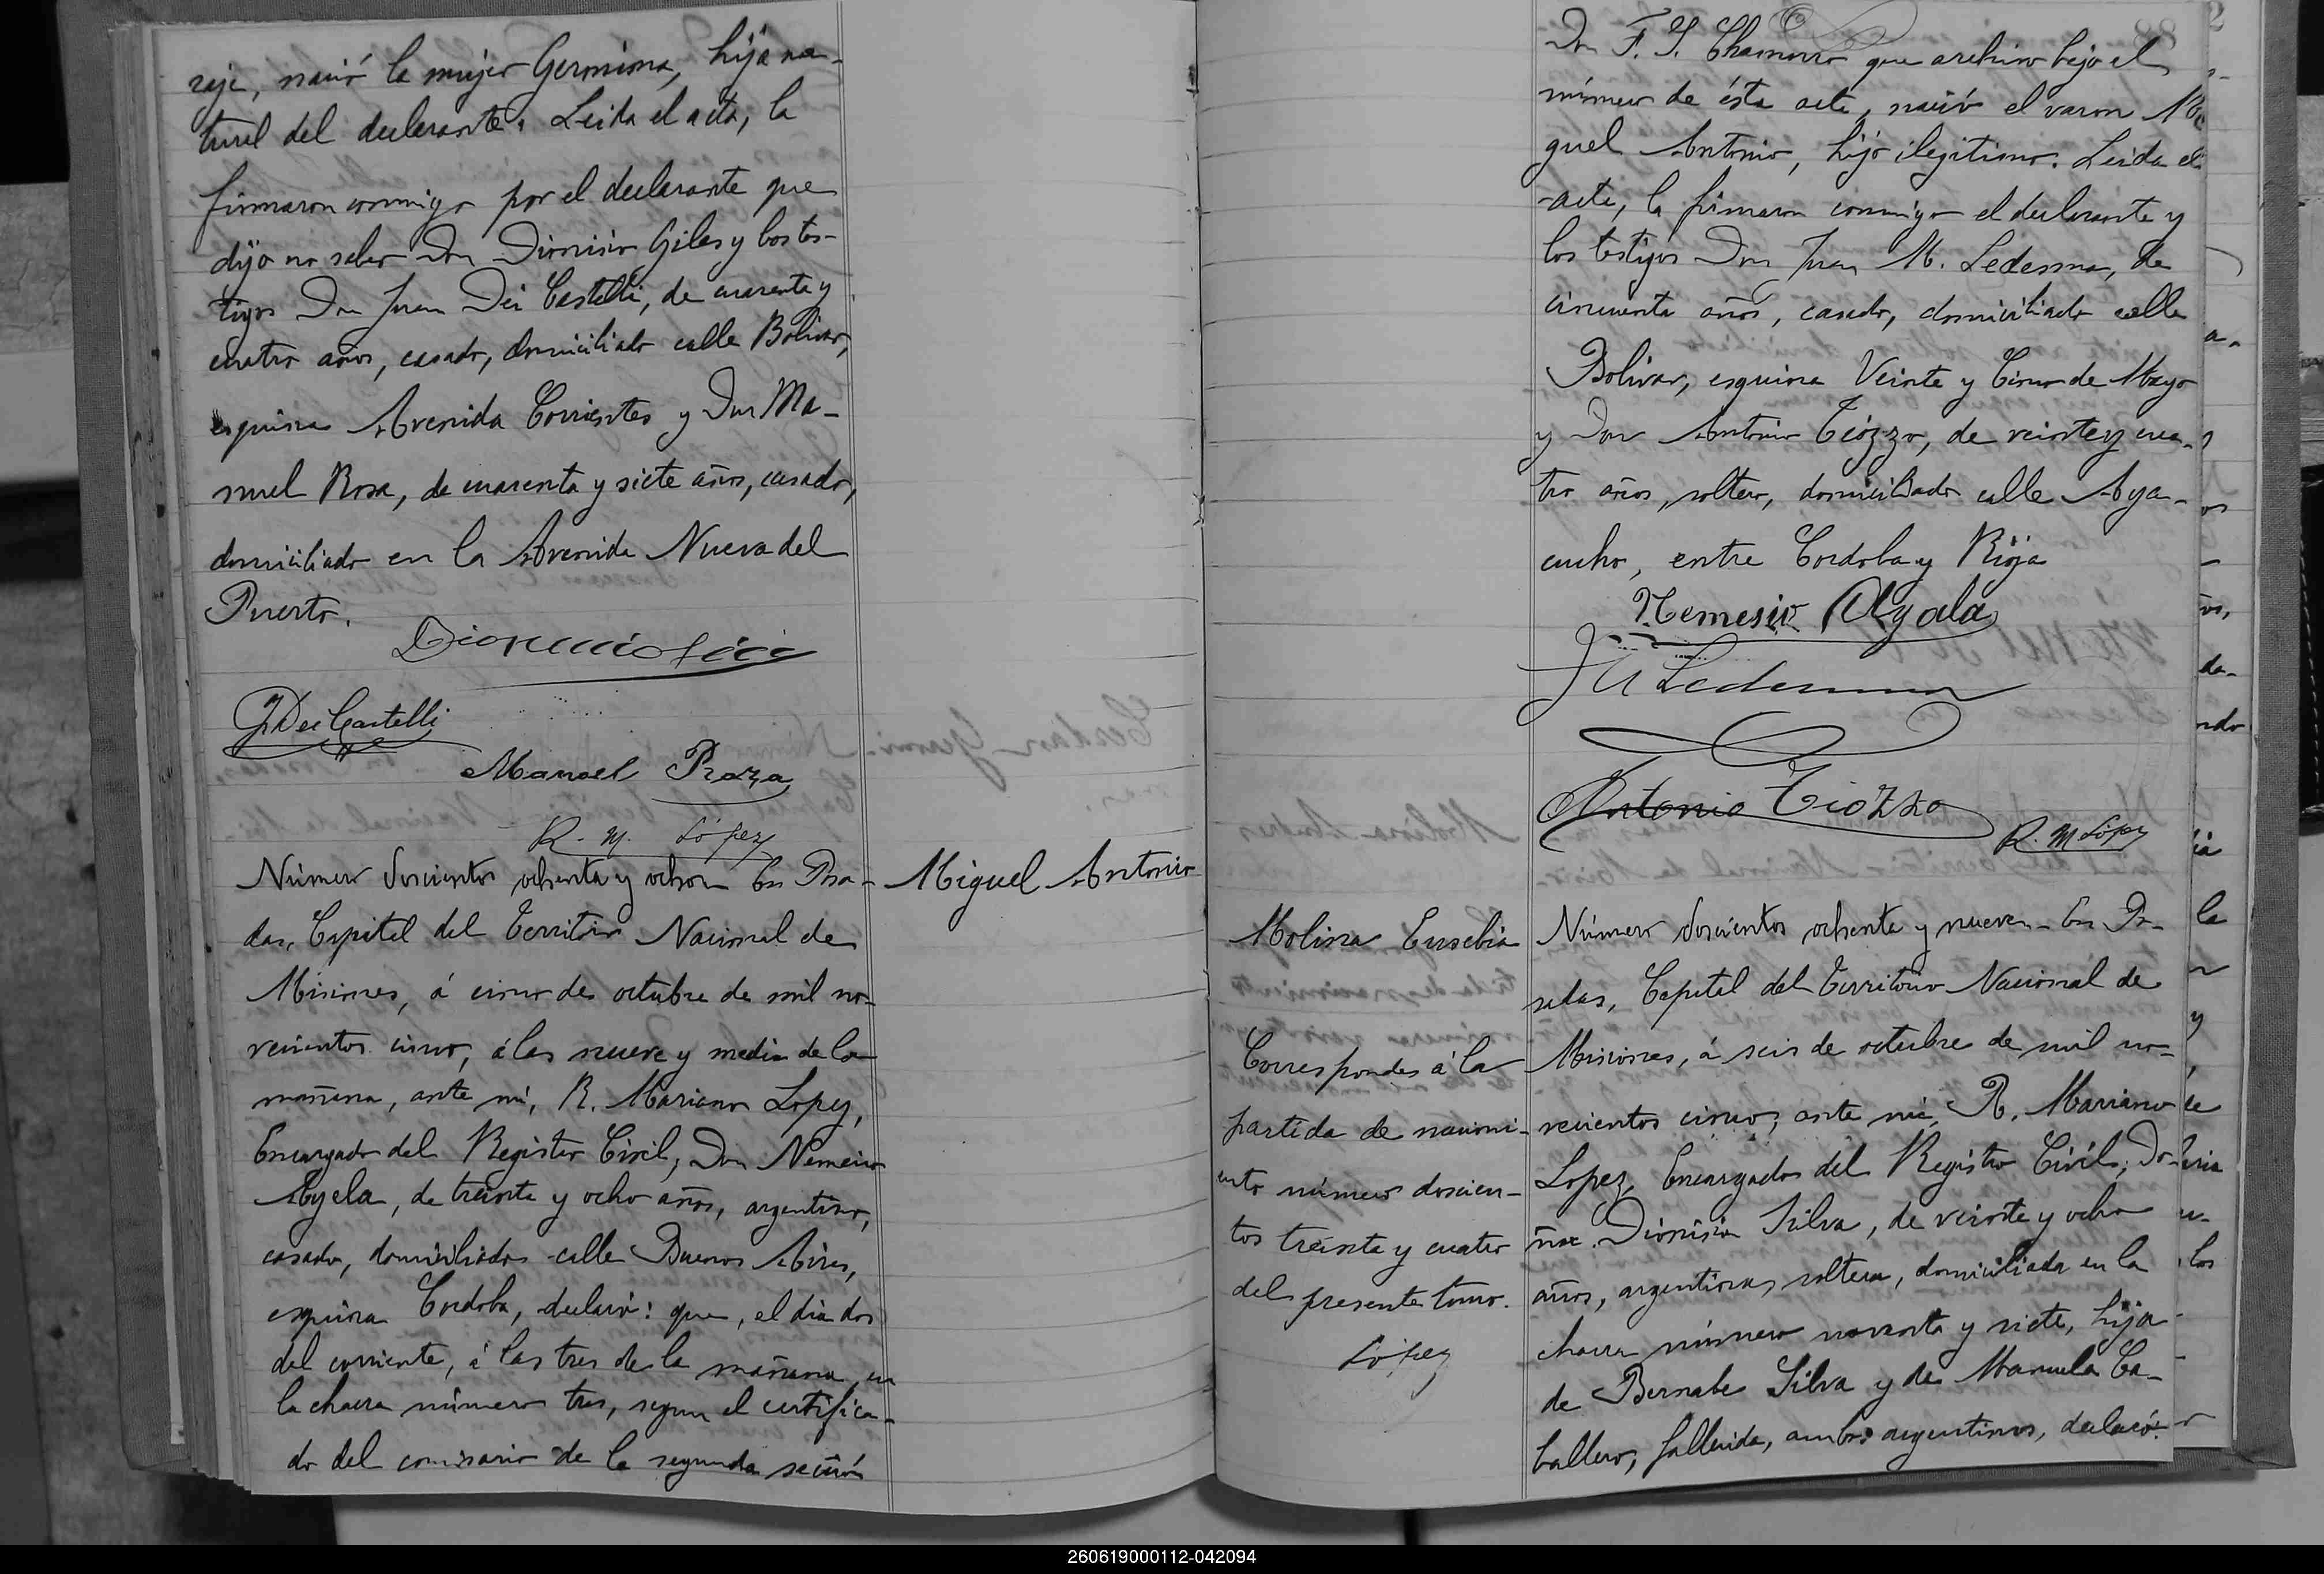 raje, nació la mujer Geronima, hija na-
tural del declarante. Leida el acta, la
firmaron conmigo por el declarante que
dijo no saber Don Dionisio Giles y los tes-
tigos Don Juan Dei Castelli, de cuarenta y
cuatro años, casado, domiciliado calle Bolivar,
esquina Avenida Corrientes y Don Ma-
nuel Rosa, de cuarenta y siete años, casado,
domiciliado en la Avenida Nueva del
Puerto.
J Dei Castelli
Manoel Roza
R. M. López
Número doscientos ochenta y ocho En Posa-
das, Capital del Territorio Nacional de
Misiones, á cinco de octubre de mil no-
vecientos cinco, á las nueve y media de la
mañana, ante mi, R. Mariano Lopez,
Encargado del Registro Civil, Don Nemesio
Ayala, de treinta y ocho años, argentino,
casado, domiciliado calle Buenos Aires,
esquina Cordoba, declaró: que, el dia dos
del corriente, á las tres de la mañana, en
la chacra número tres, segun el certifica-
do del comisario de la segunda sección
Miguel Antonio
Don F. S. Chamorro que archivo bajo el
número de ésta acta, nació el varon Mi
guel Antonio, hijo ilegitimo. Leida el
acta, la firmaron conmigo el declarante y
los testigos Don Juan M. Ledesma, de
cincuenta años, casado, domiciliado calle
Bolivar, esquina Veinte y Cinco de Mayo
y Don Antonio Tiozzo, de veinte y cua-
tro años, soltero, domiciliado calle Aya-
cucho, entre Cordoba y Rioja
Nemesio Ayala
J M Ledesma
Antonio Tiozzo
R. M López
Molina Eusebia
Corresponde á la
partida de nacimi-
ento número doscien-
tos treinta y cuatro
del presente tomo.
López
Número doscientos ochenta y nueve. En Po-
sadas, Capital del Territorio Nacional de
Misiones, á seis de octubre de mil no-
vecientos cinco, ante mi, R. Mariano
Lopez, Encargado del Registro Civil, Do-
ña Dionisia Silva, de veinte y ocho
años, argentina, soltera, domiciliada en la
chacra número noventa y siete, hija
de Bernabe Silva y de Manuela Ca-
ballero, fallecida, ambos argentinos, declaró:
260619000112-042094